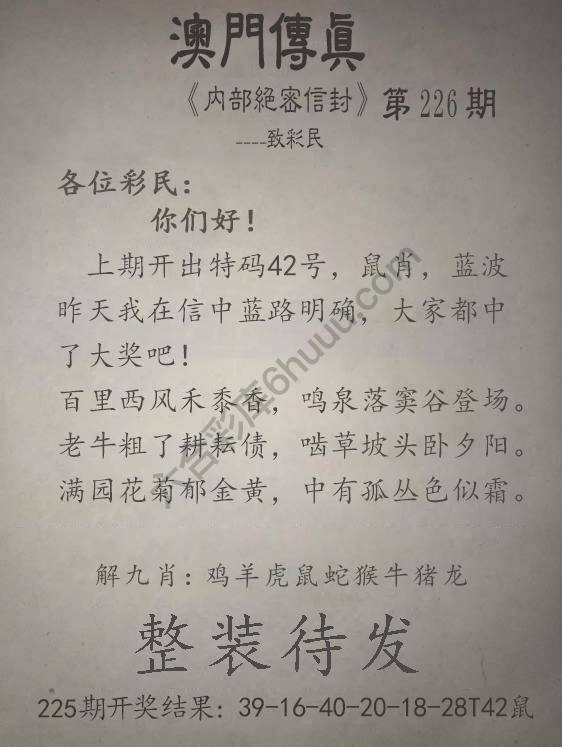 澳門傳眞
《内部絕密信封》第226期
----致彩民
各位彩民：
你们好！
上期开出特码42号，鼠肖，蓝波
昨天我在信中蓝路明确，大家都中
了大奖吧！
百里西风禾黍香，鸣泉落窦谷登场。
老牛粗了耕耘债，啮草坡头卧夕阳。
满园花菊郁金黄，中有孤丛色似霜。
六合彩库6huuu.com
解九肖：鸡羊虎鼠蛇猴牛猪龙
整装待发
225期开奖结果：39-16-40-20-18-28T42鼠